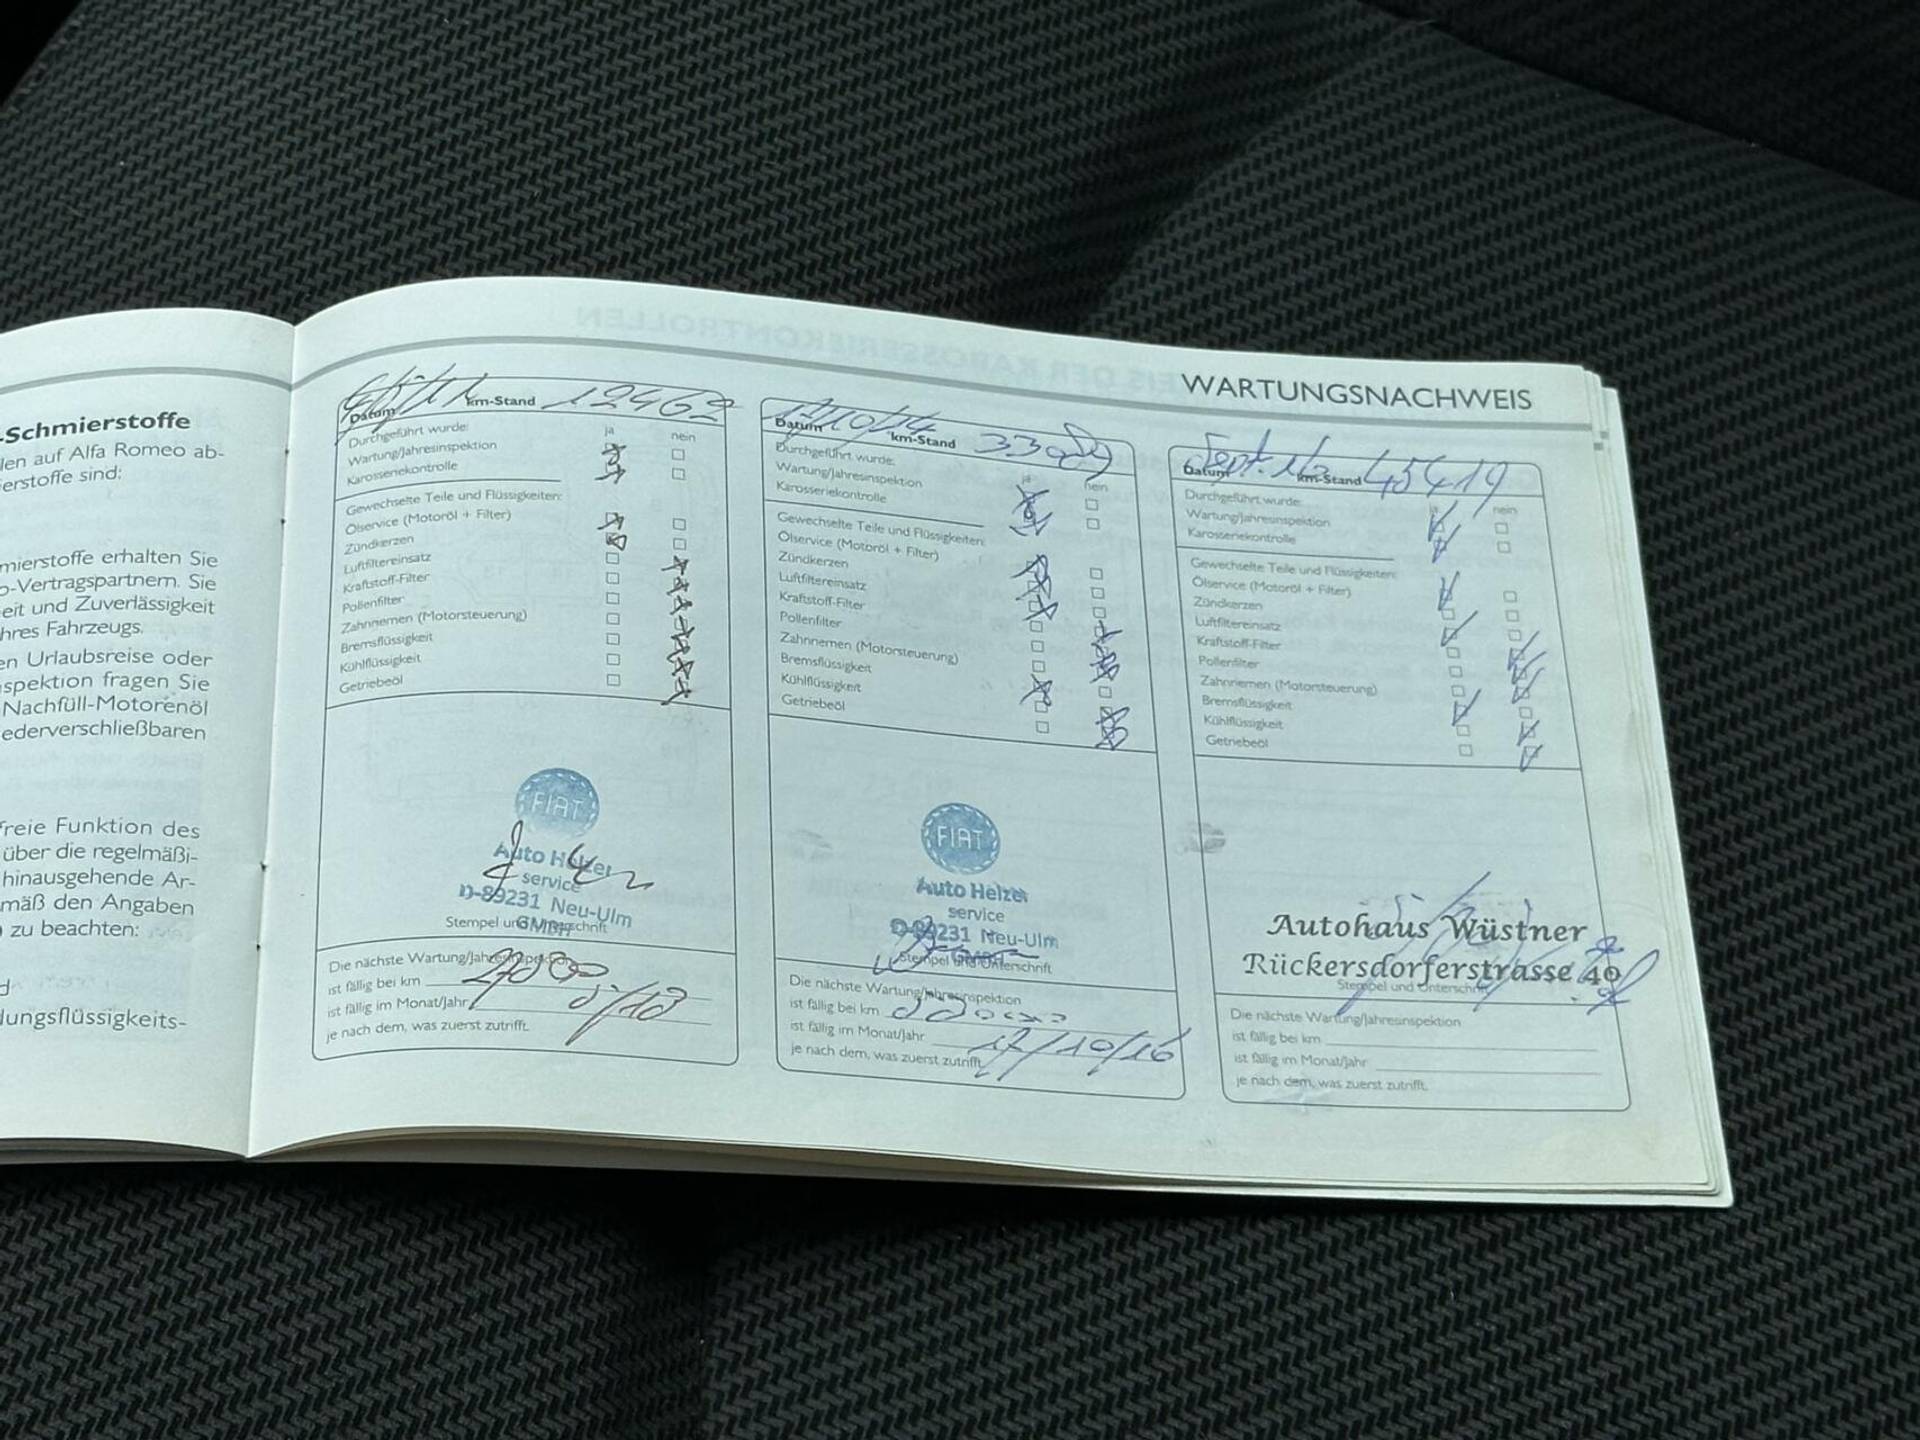 -Schmierstoffe
len auf Alfa Romeo ab-
erstoffe sind:
mierstoffe erhalten Sie
o-Vertragspartnern. Sie
eit und Zuverlässigkeit
hres Fahrzeugs.
en Urlaubsreise oder
spektion fragen Sie
Nachfüll-Motorenöl
ederverschließbaren
freie Funktion des
über die regelmäßi-
hinausgehende Ar-
mäß den Angaben
zu beachten:
d
lungsflüssigkeits-
WARTUNGSNACHWEIS
Datum km-Stand 12462
Durchgeführt wurde: ja nein
Wartung/Jahresinspektion
Karosseriekontrolle
Gewechselte Teile und Flüssigkeiten:
Ölservice (Motoröl + Filter)
Zündkerzen
Luftfiltereinsatz
Kraftstoff-Filter
Pollenfilter
Zahnriemen (Motorsteuerung)
Bremsflüssigkeit
Kühlflüssigkeit
Getriebeöl
FIAT
Auto Helzer
service
D-89231 Neu-Ulm
GMBH
Stempel und Unterschrift
Die nächste Wartung/Jahresinspektion
ist fällig bei km
ist fällig im Monat/Jahr
je nach dem, was zuerst zutrifft.
17/10/14
Datum km-Stand
Durchgeführt wurde: ja nein
Wartung/Jahresinspektion
Karosseriekontrolle
Gewechselte Teile und Flüssigkeiten:
Ölservice (Motoröl + Filter)
Zündkerzen
Luftfiltereinsatz
Kraftstoff-Filter
Pollenfilter
Zahnriemen (Motorsteuerung)
Bremsflüssigkeit
Kühlflüssigkeit
Getriebeöl
FIAT
Auto Helzer
service
D-89231 Neu-Ulm
GMBH
Stempel und Unterschrift
Die nächste Wartung/Jahresinspektion
ist fällig bei km
ist fällig im Monat/Jahr 17/10/16
je nach dem, was zuerst zutrifft.
Datum Sept. km-Stand 45419
Durchgeführt wurde: ja nein
Wartung/Jahresinspektion
Karosseriekontrolle
Gewechselte Teile und Flüssigkeiten:
Ölservice (Motoröl + Filter)
Zündkerzen
Luftfiltereinsatz
Kraftstoff-Filter
Pollenfilter
Zahnriemen (Motorsteuerung)
Bremsflüssigkeit
Kühlflüssigkeit
Getriebeöl
Autohaus Wüstner
Rückersdorferstrasse 40
Stempel und Unterschrift
Die nächste Wartung/Jahresinspektion
ist fällig bei km
ist fällig im Monat/Jahr
je nach dem, was zuerst zutrifft.